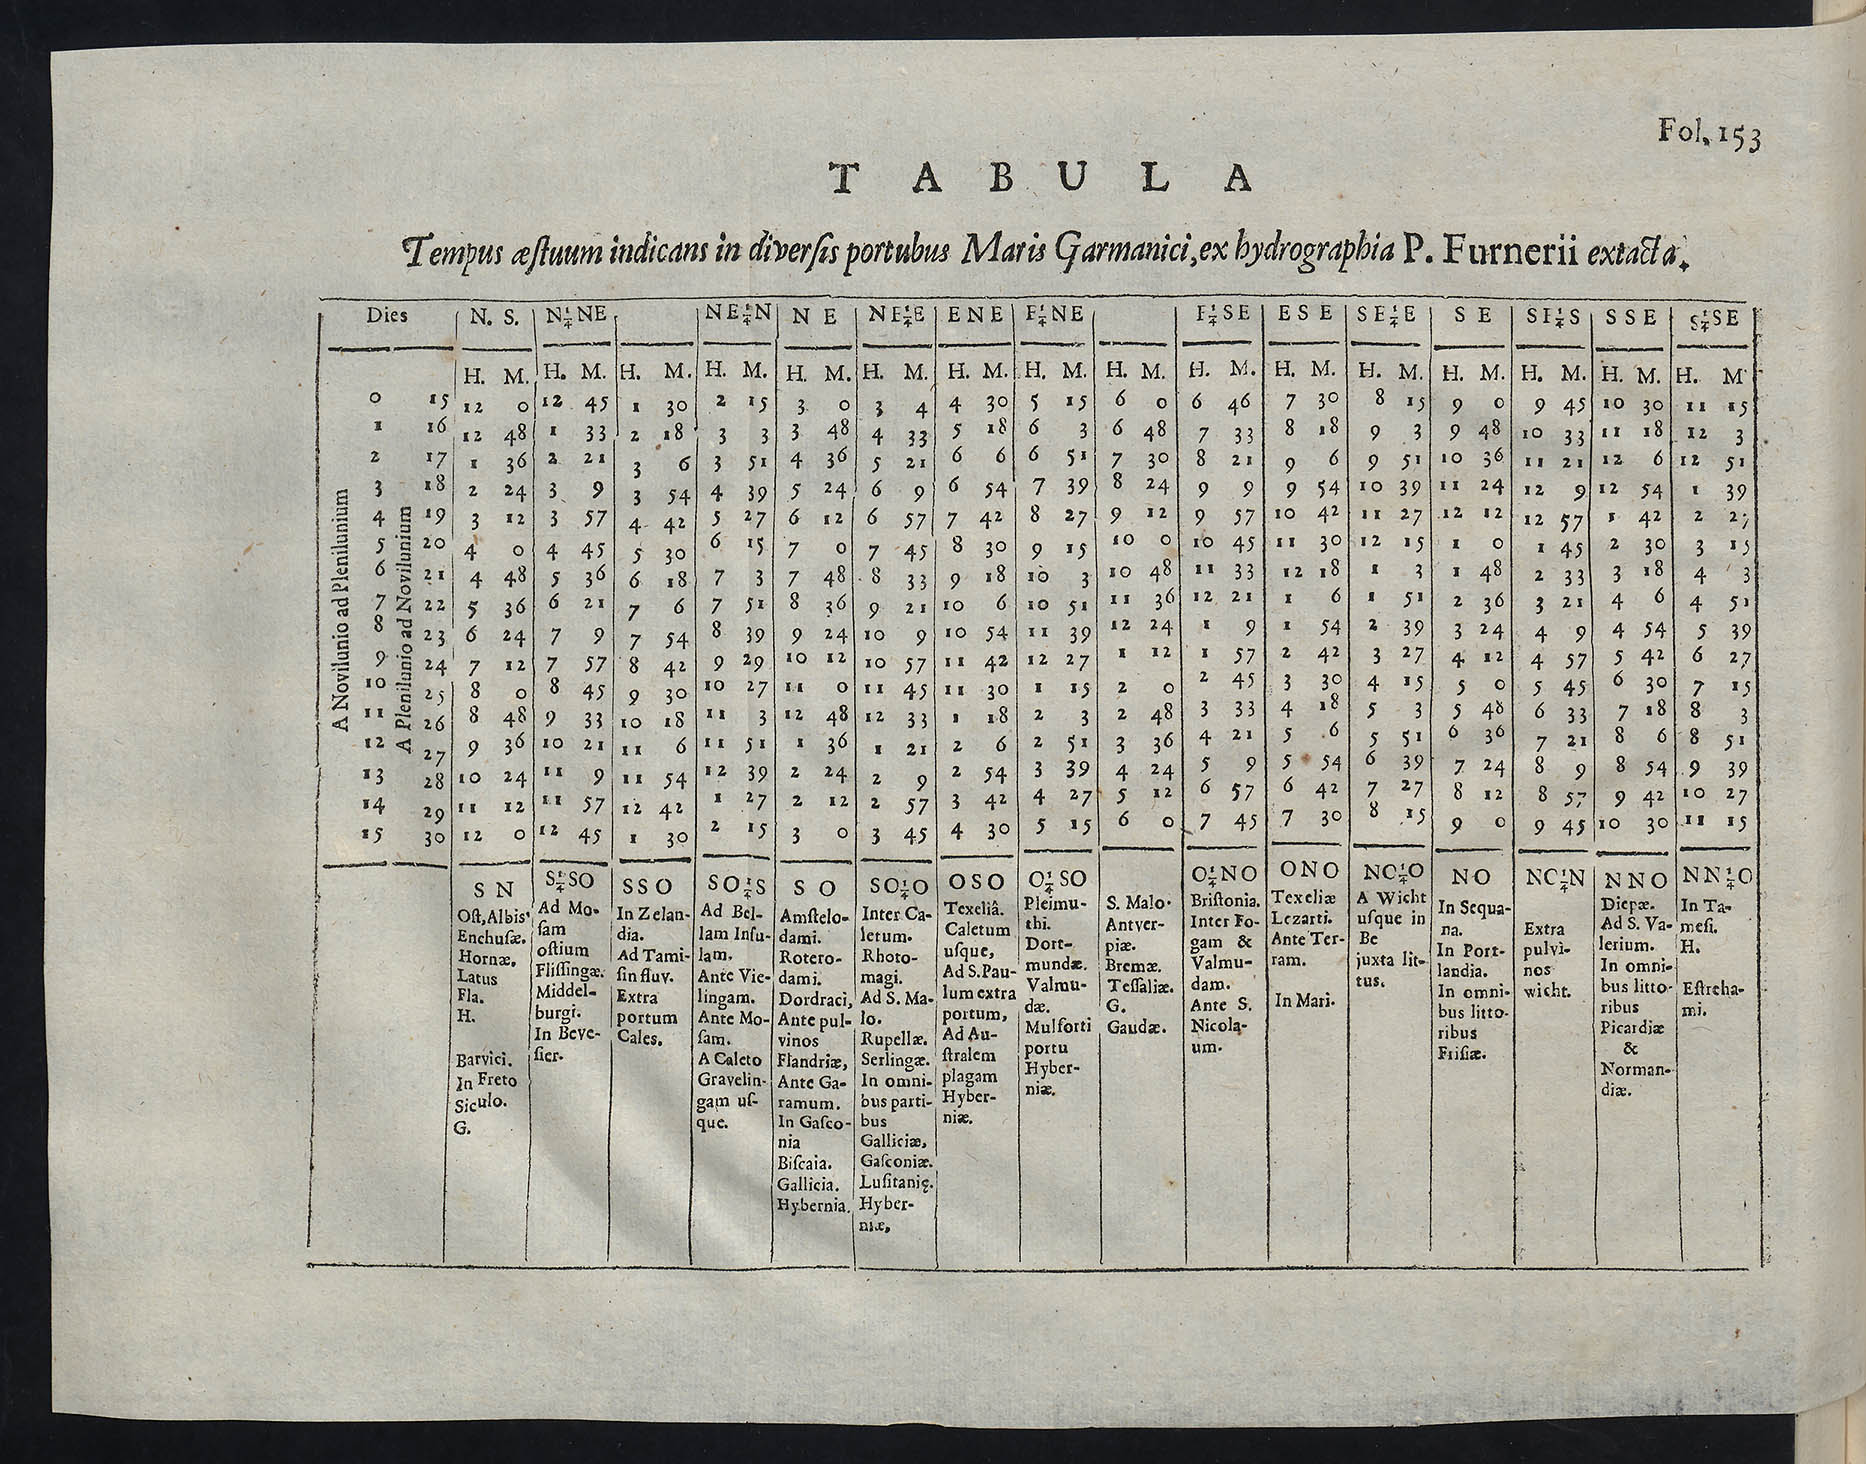 Fol. 153
TABULA
Tempus æſtuum indicans in diverſis portubus Maris Garmanici, ex hydrographia P. Furnerii extacta.
Dies N. S. N¼NE NE¼N N E NE¼E E N E E¼NE E¼SE E S E SE¼E S E SE¼S S S E S¼SE
H. M. H. M. H. M. H. M. H. M. H. M. H. M. H. M. H. M. H. M. H. M. H. M. H. M. H. M. H. M. H. M
A Novilunio ad Plenilunium
A Plenilunio ad Novilunium
0 15 12 0 12 45 1 30 2 15 3 0 3 4 4 30 5 15 6 0 6 46 7 30 8 15 9 0 9 45 10 30 11 15
1 16 12 48 1 33 2 18 3 3 3 48 4 33 5 18 6 3 6 48 7 33 8 18 9 3 9 48 10 33 11 18 12 3
2 17 1 36 2 21 3 6 3 51 4 36 5 21 6 6 6 51 7 30 8 21 9 6 9 51 10 36 11 21 12 6 12 51
3 18 2 24 3 9 3 54 4 39 5 24 6 9 6 54 7 39 8 24 9 9 9 54 10 39 11 24 12 9 12 54 1 39
4 19 3 12 3 57 4 42 5 27 6 12 6 57 7 42 8 27 9 12 9 57 10 42 11 27 12 12 12 57 1 42 2 27
5 20 4 0 4 45 5 30 6 15 7 0 7 45 8 30 9 15 10 0 10 45 11 30 12 15 1 0 1 45 2 30 3 15
6 21 4 48 5 36 6 18 7 3 7 48 8 33 9 18 10 3 10 48 11 33 12 18 1 3 1 48 2 33 3 18 4 3
7 22 5 36 6 21 7 6 7 51 8 36 9 21 10 6 10 51 11 36 12 21 1 6 1 51 2 36 3 21 4 6 4 51
8 23 6 24 7 9 7 54 8 39 9 24 10 9 10 54 11 39 12 24 1 9 1 54 2 39 3 24 4 9 4 54 5 39
9 24 7 12 7 57 8 42 9 29 10 12 10 57 11 42 12 27 1 12 1 57 2 42 3 27 4 12 4 57 5 42 6 27
10 25 8 0 8 45 9 30 10 27 11 0 11 45 11 30 1 15 2 0 2 45 3 30 4 15 5 0 5 45 6 30 7 15
11 26 8 48 9 33 10 18 11 3 12 48 12 33 1 18 2 3 2 48 3 33 4 18 5 3 5 48 6 33 7 18 8 3
12 27 9 36 10 21 11 6 11 51 1 36 1 21 2 6 2 51 3 36 4 21 5 6 5 51 6 36 7 21 8 6 8 51
13 28 10 24 11 9 11 54 12 39 2 24 2 9 2 54 3 39 4 24 5 9 5 54 6 39 7 24 8 9 8 54 9 39
14 29 11 12 11 57 12 42 1 27 2 12 2 57 3 42 4 27 5 12 6 57 6 42 7 27 8 12 8 57 9 42 10 27
15 30 12 0 12 45 1 30 2 15 3 0 3 45 4 30 5 15 6 0 7 45 7 30 8 15 9 0 9 45 10 30 11 15
S N
Oſt, Albis
Enchuſæ.
Hornæ.
Latus
Fla.
H.
Barvici.
In Freto
Siculo.
G.
S¼SO
Ad Mo-
ſam
oſtium
Fliſſingæ.
Middel-
burgi.
In Beve-
ſier.
S S O
In Zelan-
dia.
Ad Tami-
ſin fluv.
Extra
portum
Cales.
SO¼S
Ad Bel-
lam Inſu-
lam.
Ante Vie-
lingam.
Ante Mo-
ſam.
A Caleto
Gravelin-
gam uſ-
que.
S O
Amſtelo-
dami.
Rotero-
dami.
Dordraci,
Ante pul-
vinos
Flandriæ,
Ante Ga-
ramum.
In Gaſco-
nia
Biſcaia.
Gallicia.
Hybernia.
SO¼O
Inter Ca-
letum.
Rhoto-
magi.
Ad S. Ma-
lo.
Rupellæ.
Serlingæ.
In omni-
bus parti-
bus
Galliciæ,
Gaſconiæ.
Luſitanię.
Hyber-
niæ,
O S O
Texeliâ.
Caletum
uſque,
Ad S. Pau-
lum extra
portum,
Ad Au-
ſtralem
plagam
Hyber-
niæ.
O¼SO
Pleimu-
thi.
Dort-
mundæ.
Valmu-
dæ.
Mulforti
portu
Hyber-
niæ.
S. Malo.
Antver-
piæ.
Bremæ.
Teſſaliæ.
G.
Gaudæ.
O¼NO
Briſtonia.
Inter Fo-
gam &
Valmu-
dam.
Ante S.
Nicola-
um.
O N O
Texeliæ
Lezarti.
Ante Ter-
ram.
In Mari.
NO¼O
A Wicht
uſque in
Be
juxta lit-
tus.
N O
In Sequa-
na.
In Port-
landia.
In omni-
bus litto-
ribus
Friſiæ.
NO¼N
Extra
pulvi-
nos
wicht.
N N O
Diepæ.
Ad S. Va-
lerium.
In omni-
bus litto-
ribus
Picardiæ
&
Norman-
diæ.
N N¼O
In Ta-
meſi.
H.
Eſtreha-
mi.